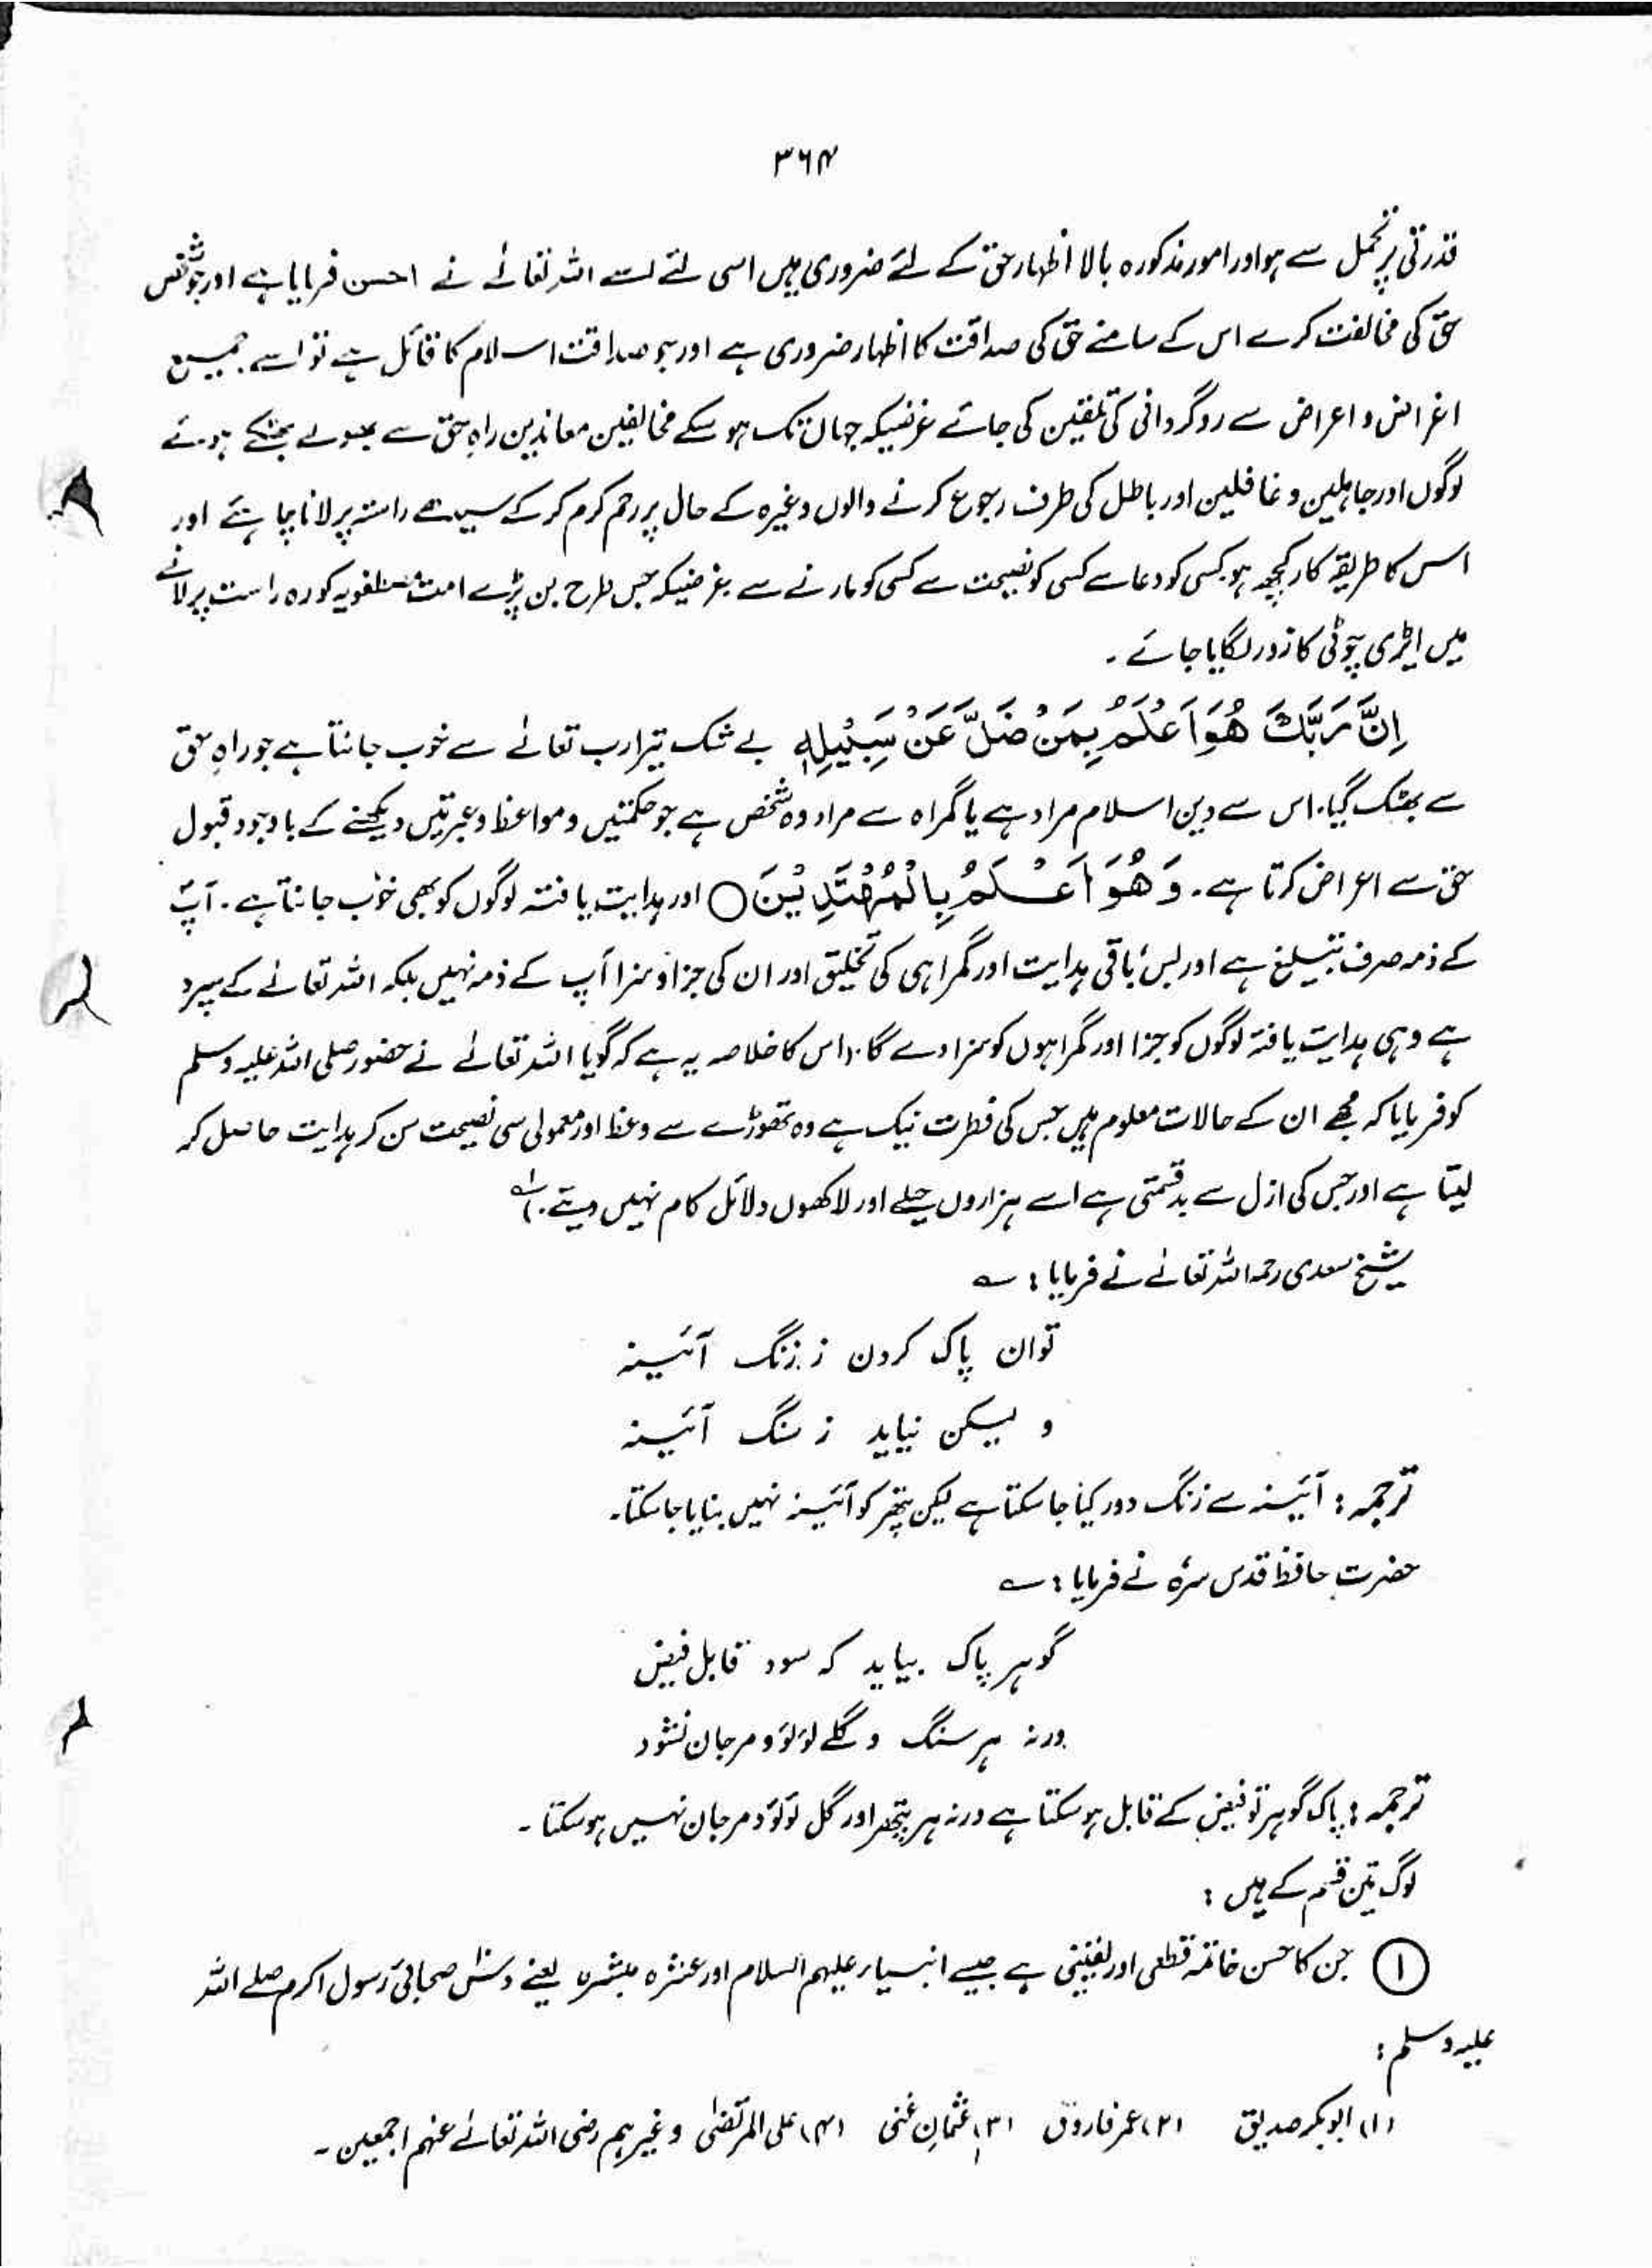 ۳۶۴
قدرتی پر تحمل سے ہو اور امور مذکورہ بالا اظہار حق کے لئے ضروری ہیں اسی لئے اسے اللہ تعالےٰ نے احسن فرمایا ہے اور جو شخص
حق کی مخالفت کرے اس کے سامنے حق کی صداقت کا اظہار ضروری ہے اور جو صداقت اسلام کا قائل ہے تو اسے جمیع
اغراض و اعراض سے روگردانی کی تلقین کی جائے غرضیکہ جہاں تک ہو سکے مخالفین معاندین راہِ حق سے بھولے بھٹکے ہوئے
لوگوں اور جاہلین و غافلین اور باطل کی طرف رجوع کرنے والوں وغیرہ کے حال پر رحم کرم کر کے سیدھے راستہ پر لانا چاہئے اور
اس کا طریقہ کار کچھ ہو کسی کو دعا سے کسی کو نصیحت سے کسی کو مارنے سے غرضیکہ جس طرح بن پڑے امت مصطفویہ کو رہ راست پر لانے
میں ایڑی چوٹی کا زور لگایا جائے ۔
اِنَّ رَبَّكَ هُوَ اَعْلَمُ بِمَنْ ضَلَّ عَنْ سَبِيْلِهٖ بے شک تیرا رب تعالےٰ سے خوب جانتا ہے جو راہِ حق
سے بھٹک گیا۔ اس سے دین اسلام مراد ہے یا گمراہ سے مراد وہ شخص ہے جو حکمتیں و مواعظ و عبرتیں دیکھنے کے باوجود قبول
حق سے اعراض کرتا ہے۔ وَهُوَ اَعْلَمُ بِالْمُهْتَدِيْنَ ○ اور ہدایت یافتہ لوگوں کو بھی خوب جانتا ہے ۔ آپ
کے ذمہ صرف تبلیغ ہے اور بس باقی ہدایت اور گمراہی کی تخلیق اور ان کی جزا و سزا آپ کے ذمہ نہیں بلکہ اللہ تعالےٰ کے سپرد
ہے وہی ہدایت یافتہ لوگوں کو جزا اور گمراہوں کو سزا دے گا۔ (اس کا خلاصہ یہ ہے کہ گویا اللہ تعالےٰ نے حضور صلی اللہ علیہ وسلم
کو فرمایا کہ مجھے ان کے حالات معلوم ہیں جس کی فطرت نیک ہے وہ تھوڑے سے وعظ اور معمولی سی نصیحت سن کر ہدایت حاصل کر
لیتا ہے اور جس کی ازل سے بدقسمتی ہے اسے ہزاروں حیلے اور لاکھوں دلائل کام نہیں دیتے۔)
شیخ سعدی رحمہ اللہ تعالےٰ نے فرمایا : ؎
توان پاک کردن ز زنگ آئینہ
و لیکن نیاید ز سنگ آئینہ
ترجمہ : آئینہ سے زنگ دور کیا جا سکتا ہے لیکن پتھر کو آئینہ نہیں بنایا جا سکتا۔
حضرت حافظ قدس سرہٗ نے فرمایا : ؎
گوہر پاک بباید کہ سود قابل فیض
ورنہ ہر سنگ و گلے لؤلؤ و مرجان نشود
ترجمہ : پاک گوہر تو فیض کے قابل ہو سکتا ہے ورنہ ہر پتھر اور گل لؤلؤ و مرجان نہیں ہو سکتا ۔
لوگ تین قسم کے ہیں :
① جن کا حسن خاتمہ قطعی اور یقینی ہے جیسے انبیاء علیہم السلام اور عشرہ مبشرہ یعنے دس صحابیٔ رسول اکرم صلے اللہ
علیہ وسلم :
(۱) ابوبکر صدیق (۲) عمر فاروق (۳) عثمان غنی (۴) علی المرتضیٰ وغیرہم رضی اللہ تعالےٰ عنہم اجمعین ۔